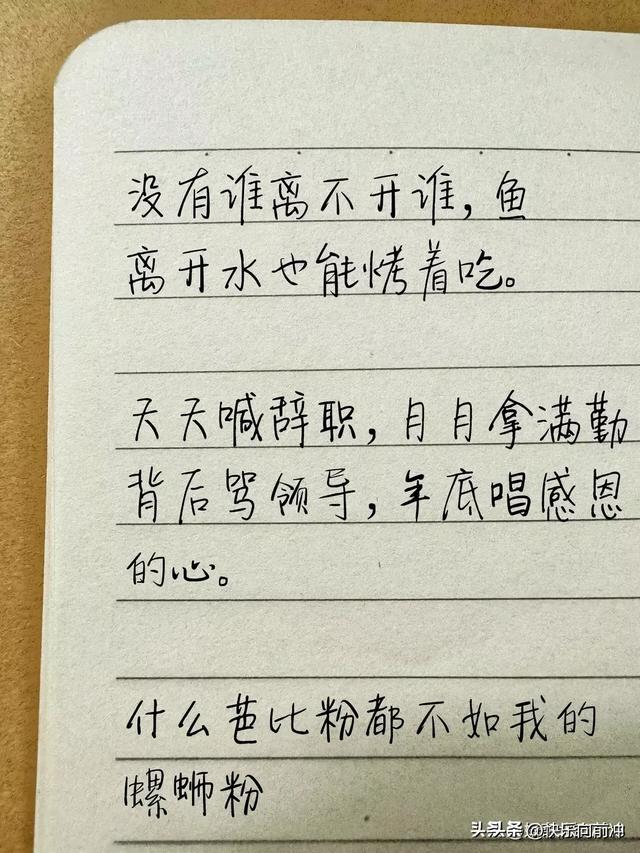 没有谁离不开谁，鱼
离开水也能烤着吃。
天天喊辞职，月月拿满勤
背后骂领导，年底唱感恩
的心。
什么芭比粉都不如我的
螺蛳粉
头条 @快乐向前冲